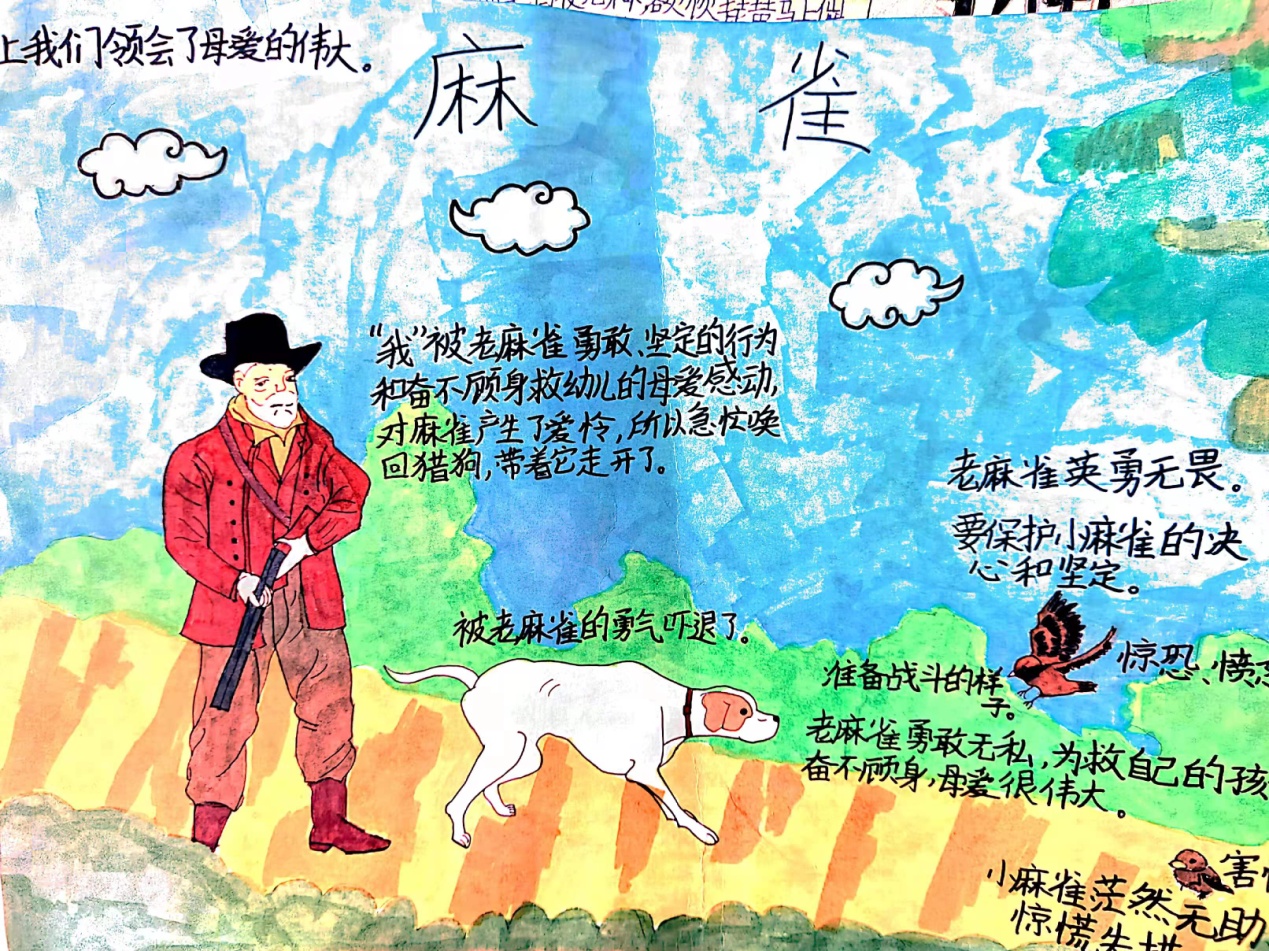 上我们领会了母爱的伟大。
麻 雀
“我”被老麻雀勇敢、坚定的行为
和奋不顾身救幼儿的母爱感动,
对麻雀产生了爱怜,所以急忙唤
回猎狗,带着它走开了。
老麻雀英勇无畏。
要保护小麻雀的决
心和坚定。
被老麻雀的勇气吓退了。
惊恐、愤
准备战斗的样
子。
老麻雀勇敢无私,为救自己的孩
奋不顾身,母爱很伟大。
害
小麻雀茫然无助
惊慌失